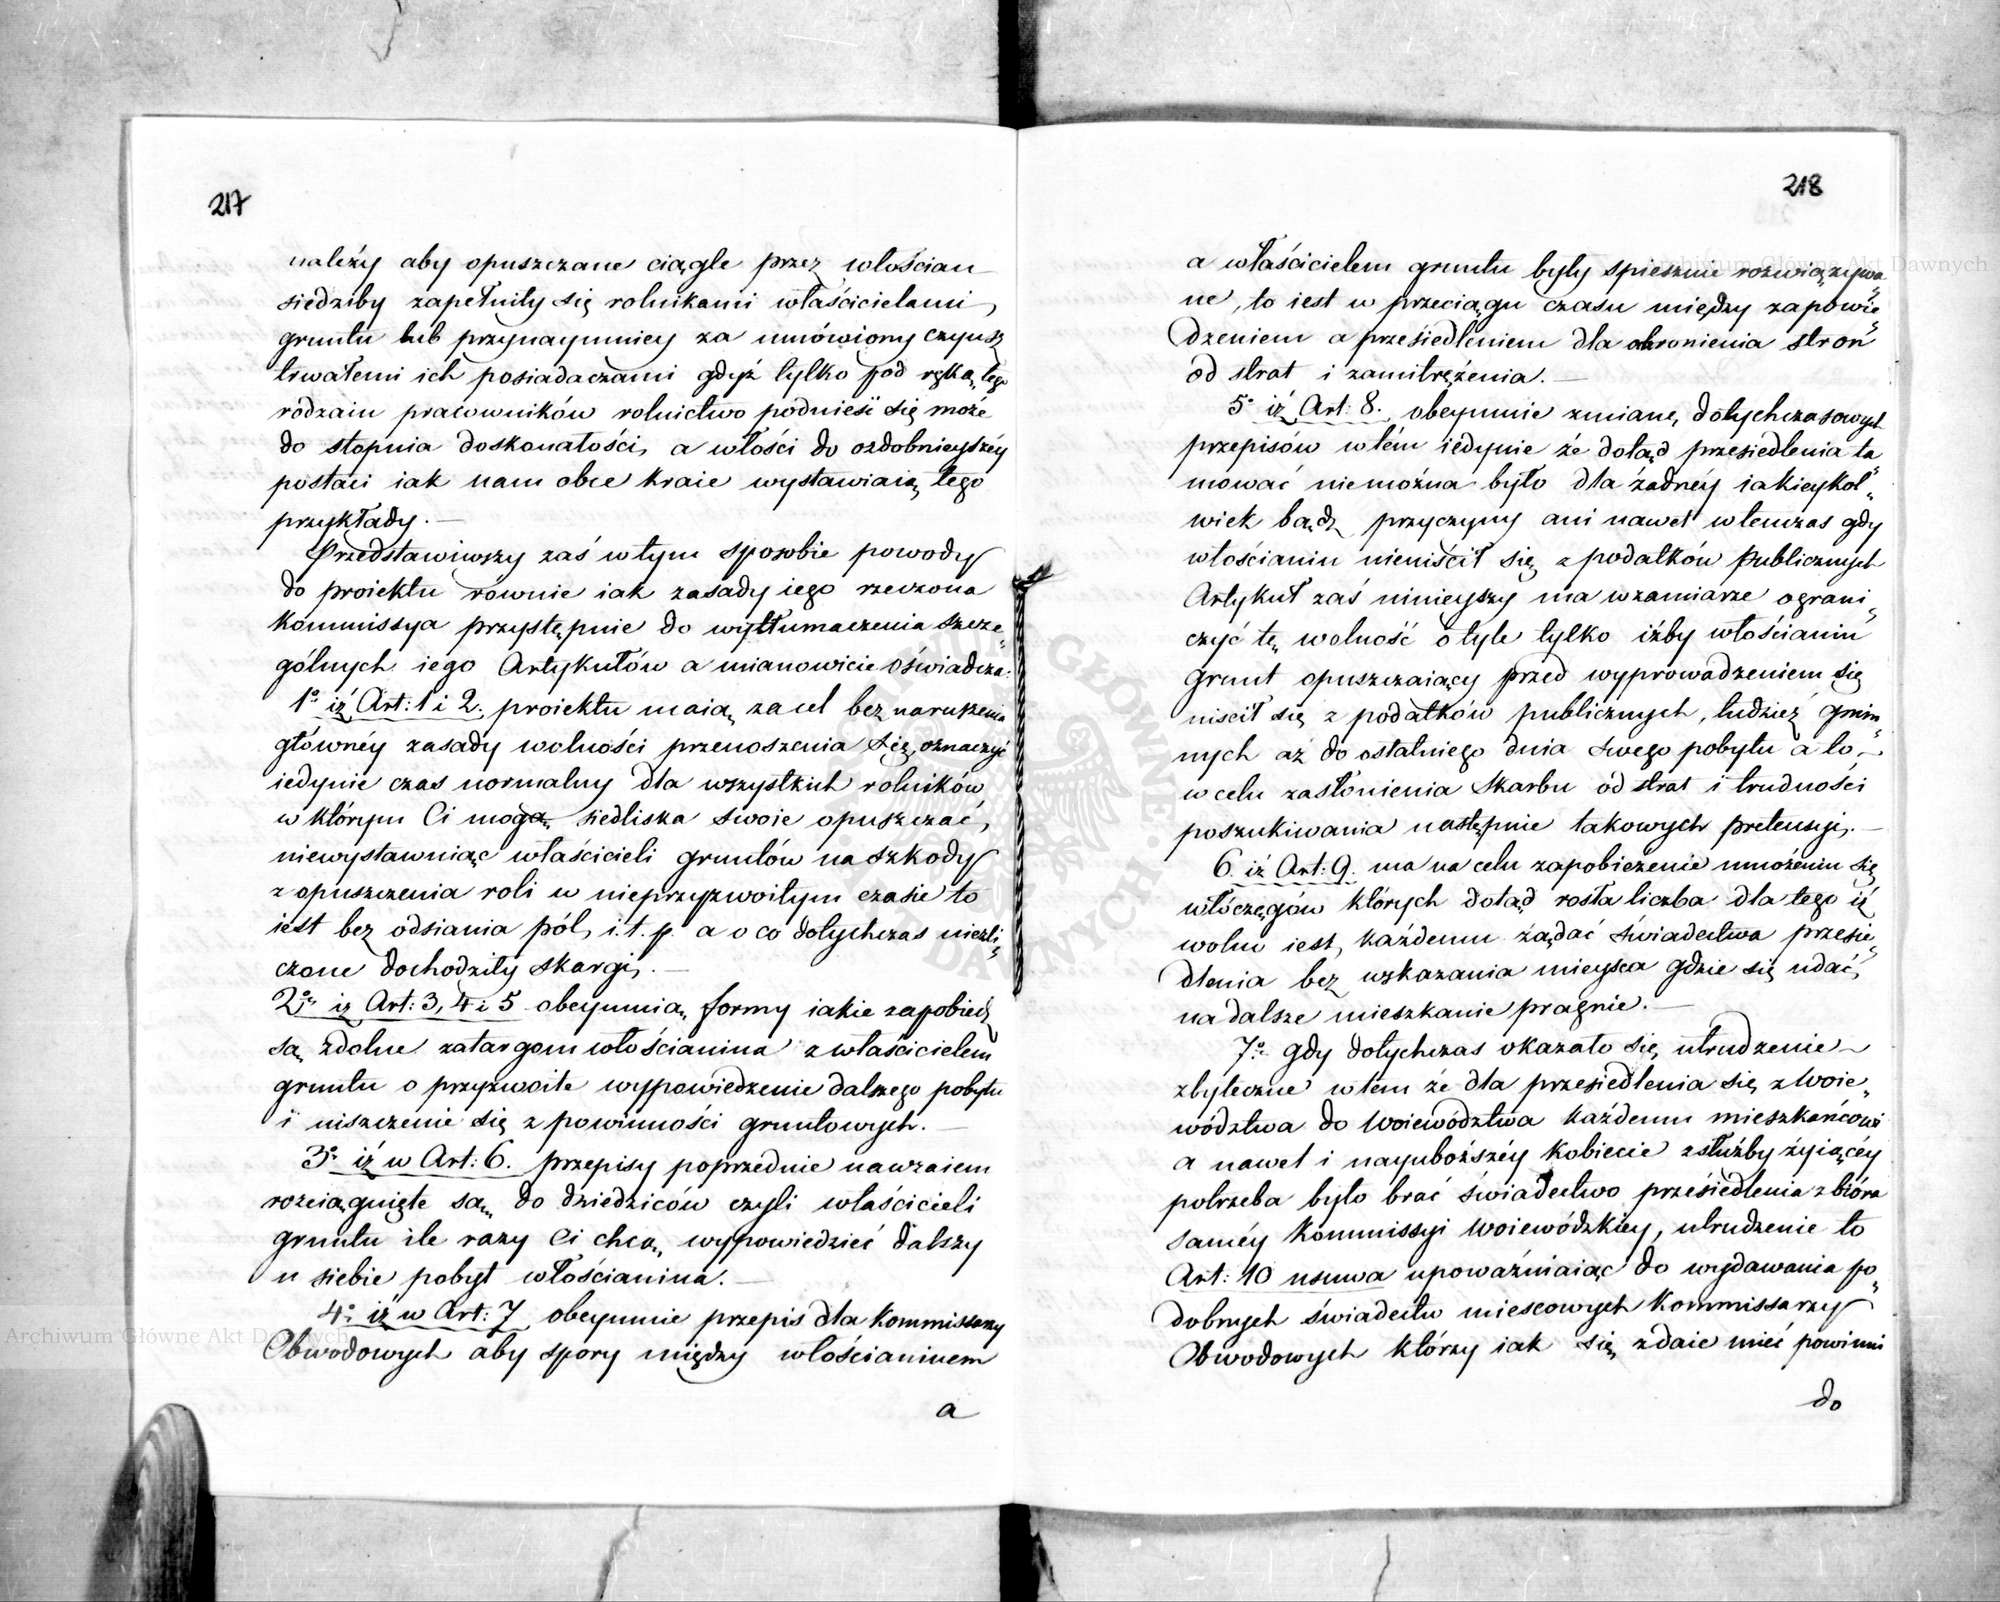 217
należy aby opuszczane ciągle przez włościan
siedziby zapełniły się rolnikami właścicielami
gruntu lub przynaymniey za umówiony czynsz
trwałemi ich posiadaczami gdyż tylko pod ręką tego
rodzaiu pracowników rolnictwo podnieść się może
do stopnia doskonałości, a włości do ozdobnieyszéy
postaci iak nam obce kraie wystawiaią tego
przykłady.—
Przedstawiwszy zaś w tym sposobie powody
do proiektu równie iak zasady iego rzeczona
Kommissya przystępnie do wytłumaczenia szcze„
gólnych iego Artykułów a mianowicie oświadcza:
1° iż Art: 1 i 2. proiektu maią za cel bez naruszenia
główney zasady wolności przenoszenia się, oznaczyć
iedynie czas normalny dla wszystkich rolników
w którym Ci mogą siedliska swoie opuszczać,
niewystawuiąc właścicieli gruntów na szkody
z opuszczenia roli w nieprzyzwoitym czasie to
iest bez odsiania pól, i.t.p. a o co dotychczas niezli„
czone dochodziły skargi.—
2° iż Art: 3, 4 i 5 obeymuią formy iakie zapobiedz
są zdolne zatargom włościanina z właścicielem
gruntu o przyzwoite wypowiedzenie dalszego pobytu
i uiszczenie się z powinności gruntowych.—
3° iż w Art: 6. przepisy poprzednie nawzaiem
rozciągnięte są do dziedziców czyli właścicieli
gruntu ile razy Ci chcą wypowiedzieć dalszy
u siebie pobyt włościanina.—
4° iż w Art: 7 obeymuie przepis dla Kommissarzy
Obwodowych aby spory między włościaninem
a
218
a właścicielem gruntu były spiesznie rozwiązywa„
ne, to iest w przeciągu czasu między zapowie„
dzeniem a przesiedleniem dla ochronienia stron
od strat i zamitrężenia.—
5° iż Art: 8. obeymuie zmianę, dotychczasowych
przepisów w tém iedynie że dotąd przesiedlenia ta„
mować niemożna było dla żadnéy iakieykol„
wiek bądź przyczyny ani nawet wtenczas gdy
włościanin nieuiścił się z podatków publicznych
Artykuł zaś ninieyszy ma w zamiarze ograni„
czyć tę wolność o tyle tylko iżby włościanin
grunt opuszczaiący przed wyprowadzeniem się
uiścił się z podatków publicznych, tudzież gmin„
nych aż do ostatniego dnia swego pobytu a to
w celu zasłonienia Skarbu od strat i trudności
poszukiwania następnie takowych pretensyi.—
6. iż Art: 9. ma na celu zapobieżenie mnożeniu się
włóczęgów których dotąd rosła liczba dla tego iż
wolno iest, każdemu żądać świadectwa przesie„
dlenia bez wskazania mieysca gdzie się udać,
na dalsze mieszkanie pragnie.—
7° gdy dotychczas okazało się utrudzenie
zbyteczne w tem że dla przesiedlenia się z Woie„
wództwa do Województwa każdemu mieszkańcowi
a nawet i nayuboższéy kobiecie z służby żyiącéy
potrzeba było brać świadectwo przesiedlenia z bióra
saméy Kommissyi Woiewódzkiéy, utrudzenie to
Art: 10 usuwa upoważniaiąc do wydawania po„
dobnych świadectw miescowych Kommissarzy
Obwodowych którzy iak się zdaie mieć powinni
do
Archiwum Główne Akt Dawnych
Archiwum Główne Akt Dawnych